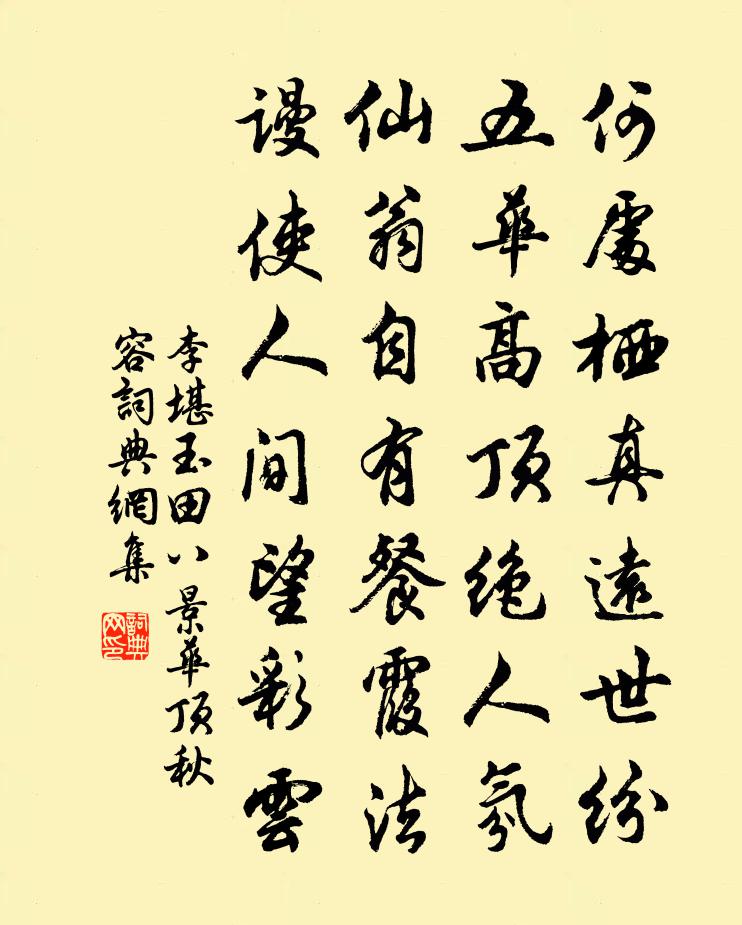 何處栖真遠世紛
五華高頂絶人氛
仙翁自有餐霞法
謾使人間望彩雲
李堪玉田八景華頂秋
容詞典網集
詞典网印